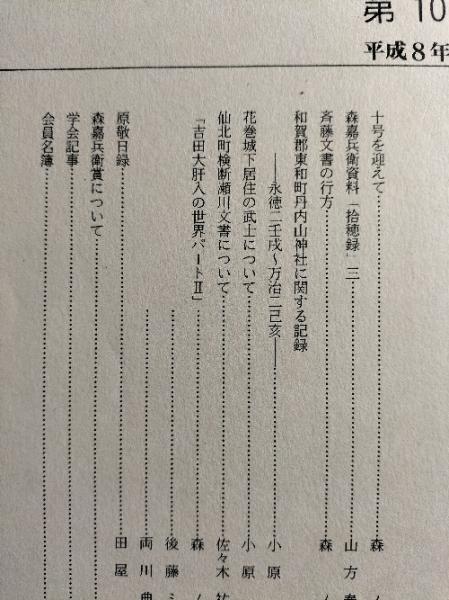 第 10
平成8年
十号を迎えて……………………森
森嘉兵衛資料「拾穂録」三……………………山方
斉藤文書の行方……………………森
和賀郡東和町丹内山神社に関する記録
――永徳二壬戌～万治二己亥――……………………小原
花巻城下居住の武士について……………………小原
仙北町検断瀬川文書について……………………佐々木
「吉田大肝入の世界パートⅡ」……………………森
……………………後藤
……………………両川典
原敬日録……………………田屋
森嘉兵衛賞について……………………
学会記事……………………
会員名簿……………………